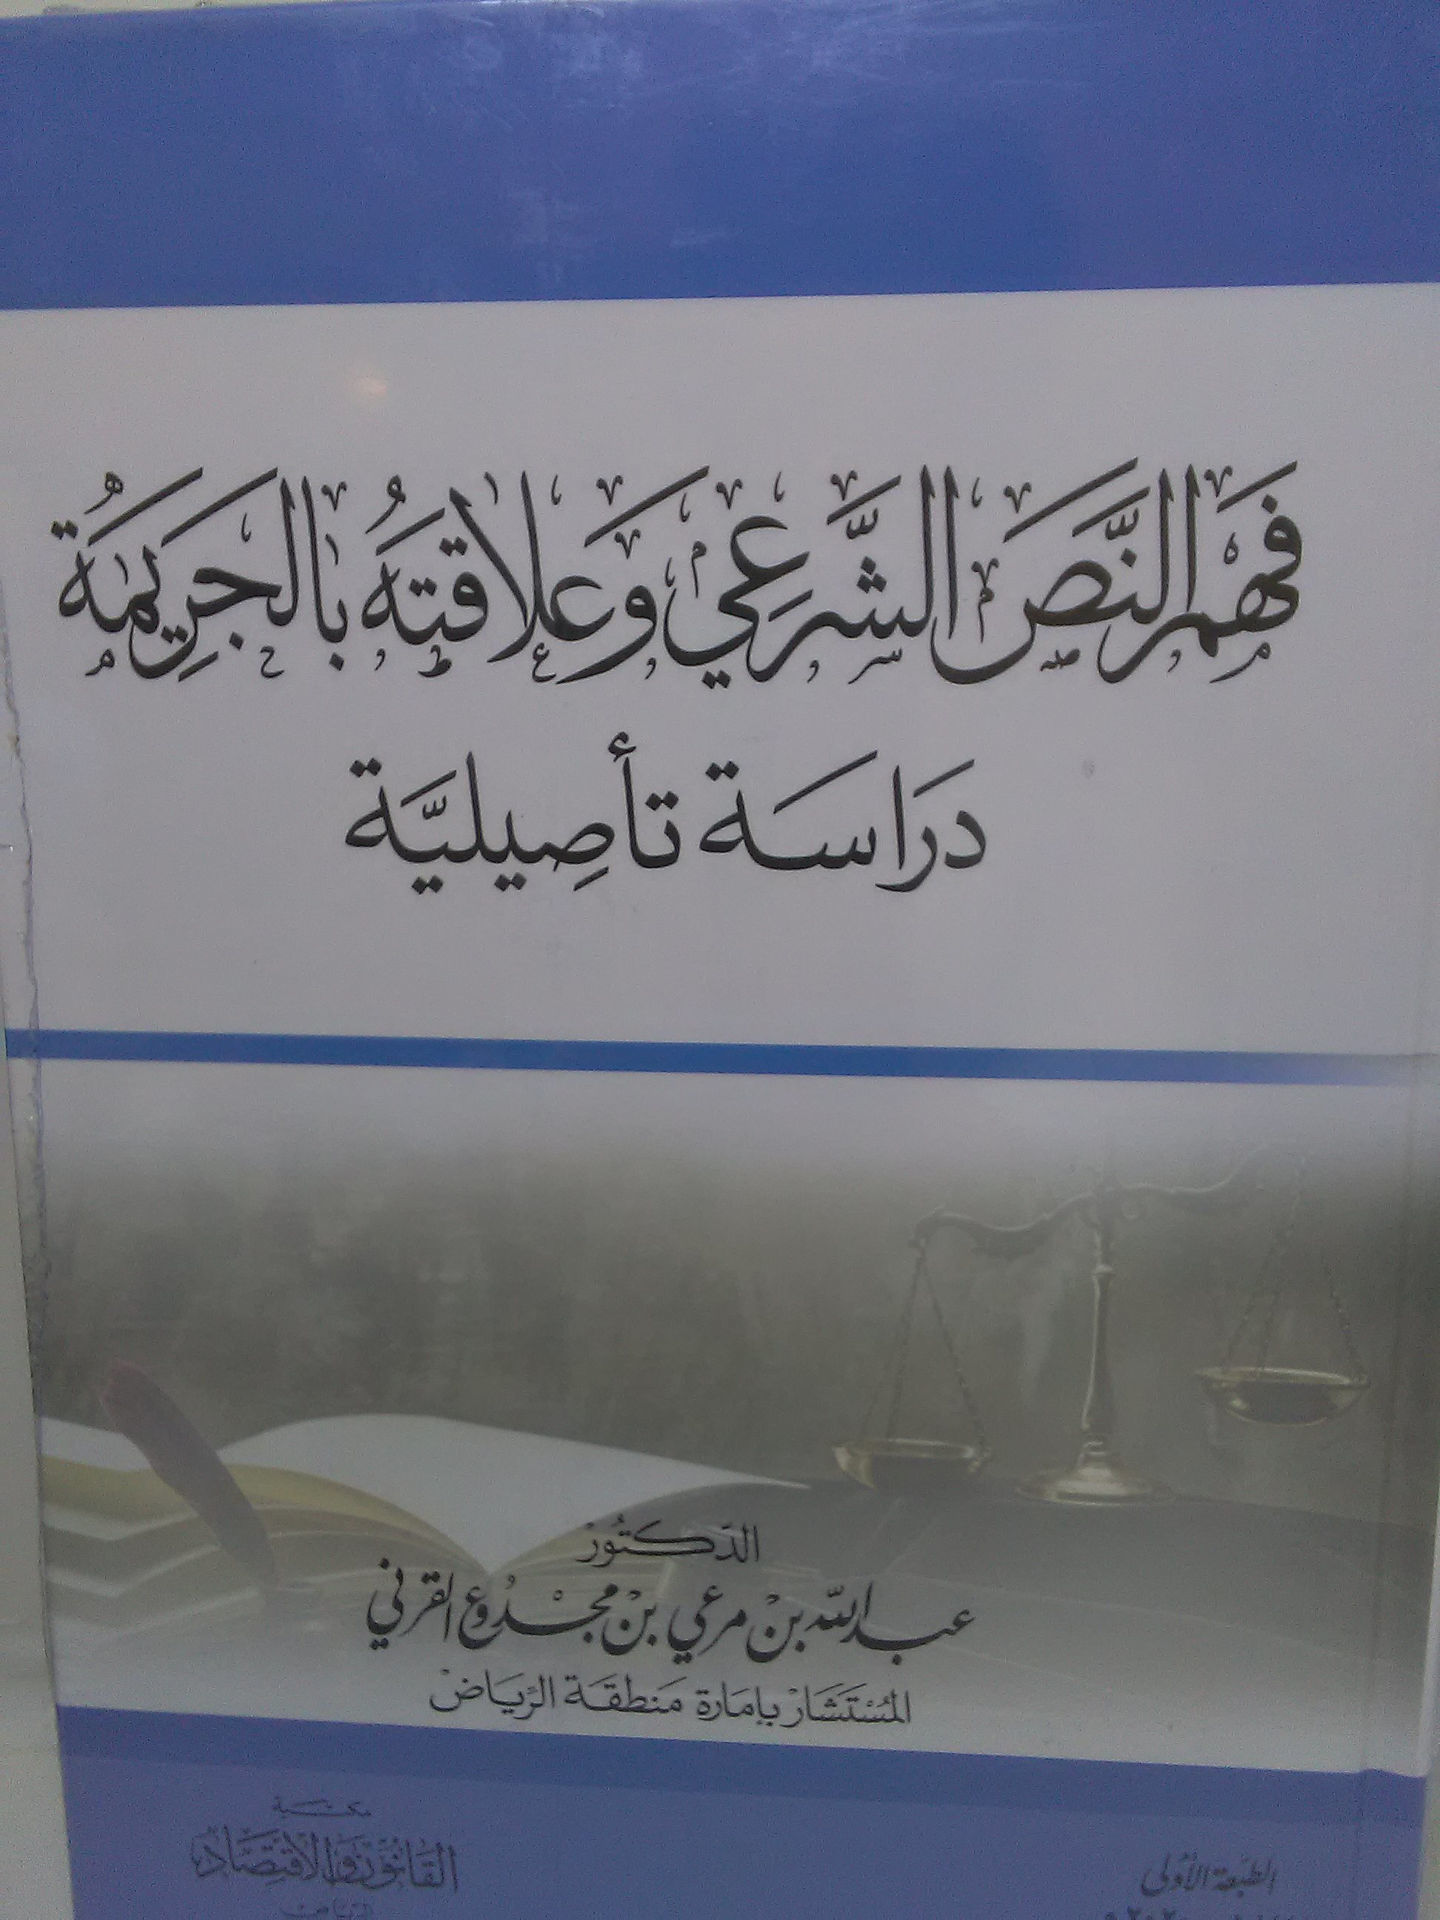 فهم النص الشرعي وعلاقته بالجريمة
دراسة تأصيلية
الدكتور
عبدالله بن مرعي بن مجدوع القرني
المستشار بإمارة منطقة الرياض
مكتبة
القانون والاقتصاد
الرياض
الطبعة الأولى